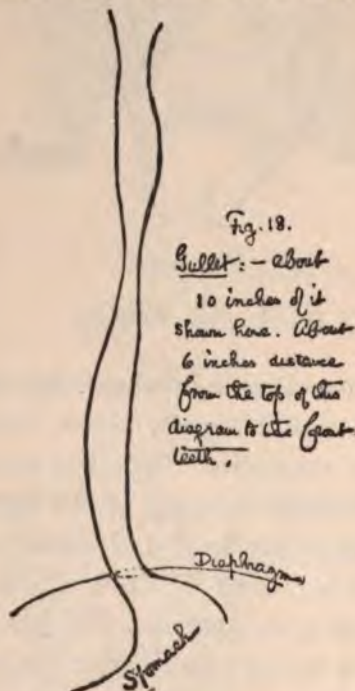 Fig. 18.
Gullet: – about
10 inches of it
shown here. About
6 inches distance
from the top of this
diagram to the front
teeth.
Diaphragm
Stomach